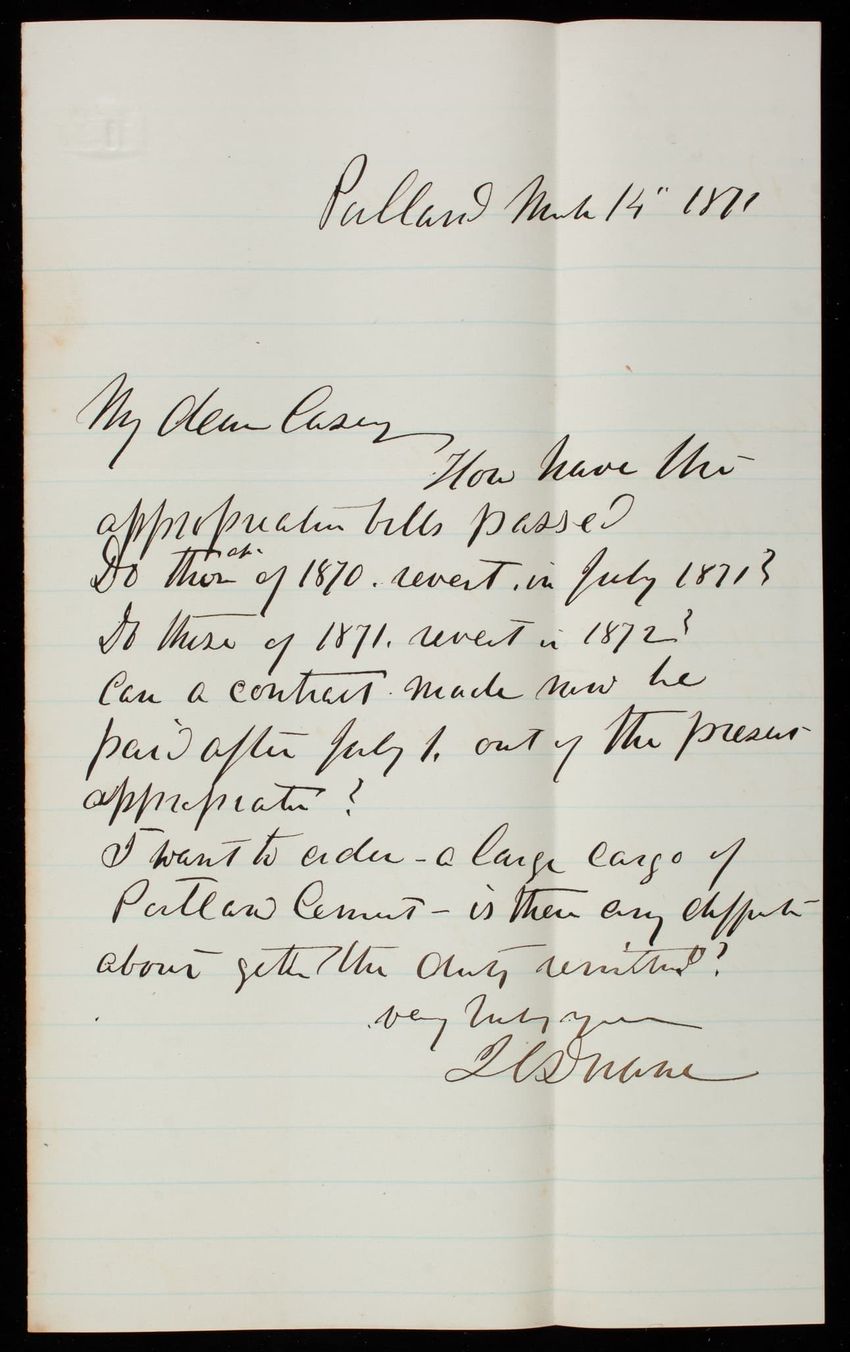 Portland March 14" 1871
My dear Casey
How have the
appropriation bills passed
Do those of 1870. revert. in July 1871?
Do those of 1871. revert in 1872?
Can a contract made now be
paid after July 1. out of the present
appropriation?
I want to order - a large cargo of
Portland Cement - is there any
about getting the duty remitted?
very truly yours
J C Duane